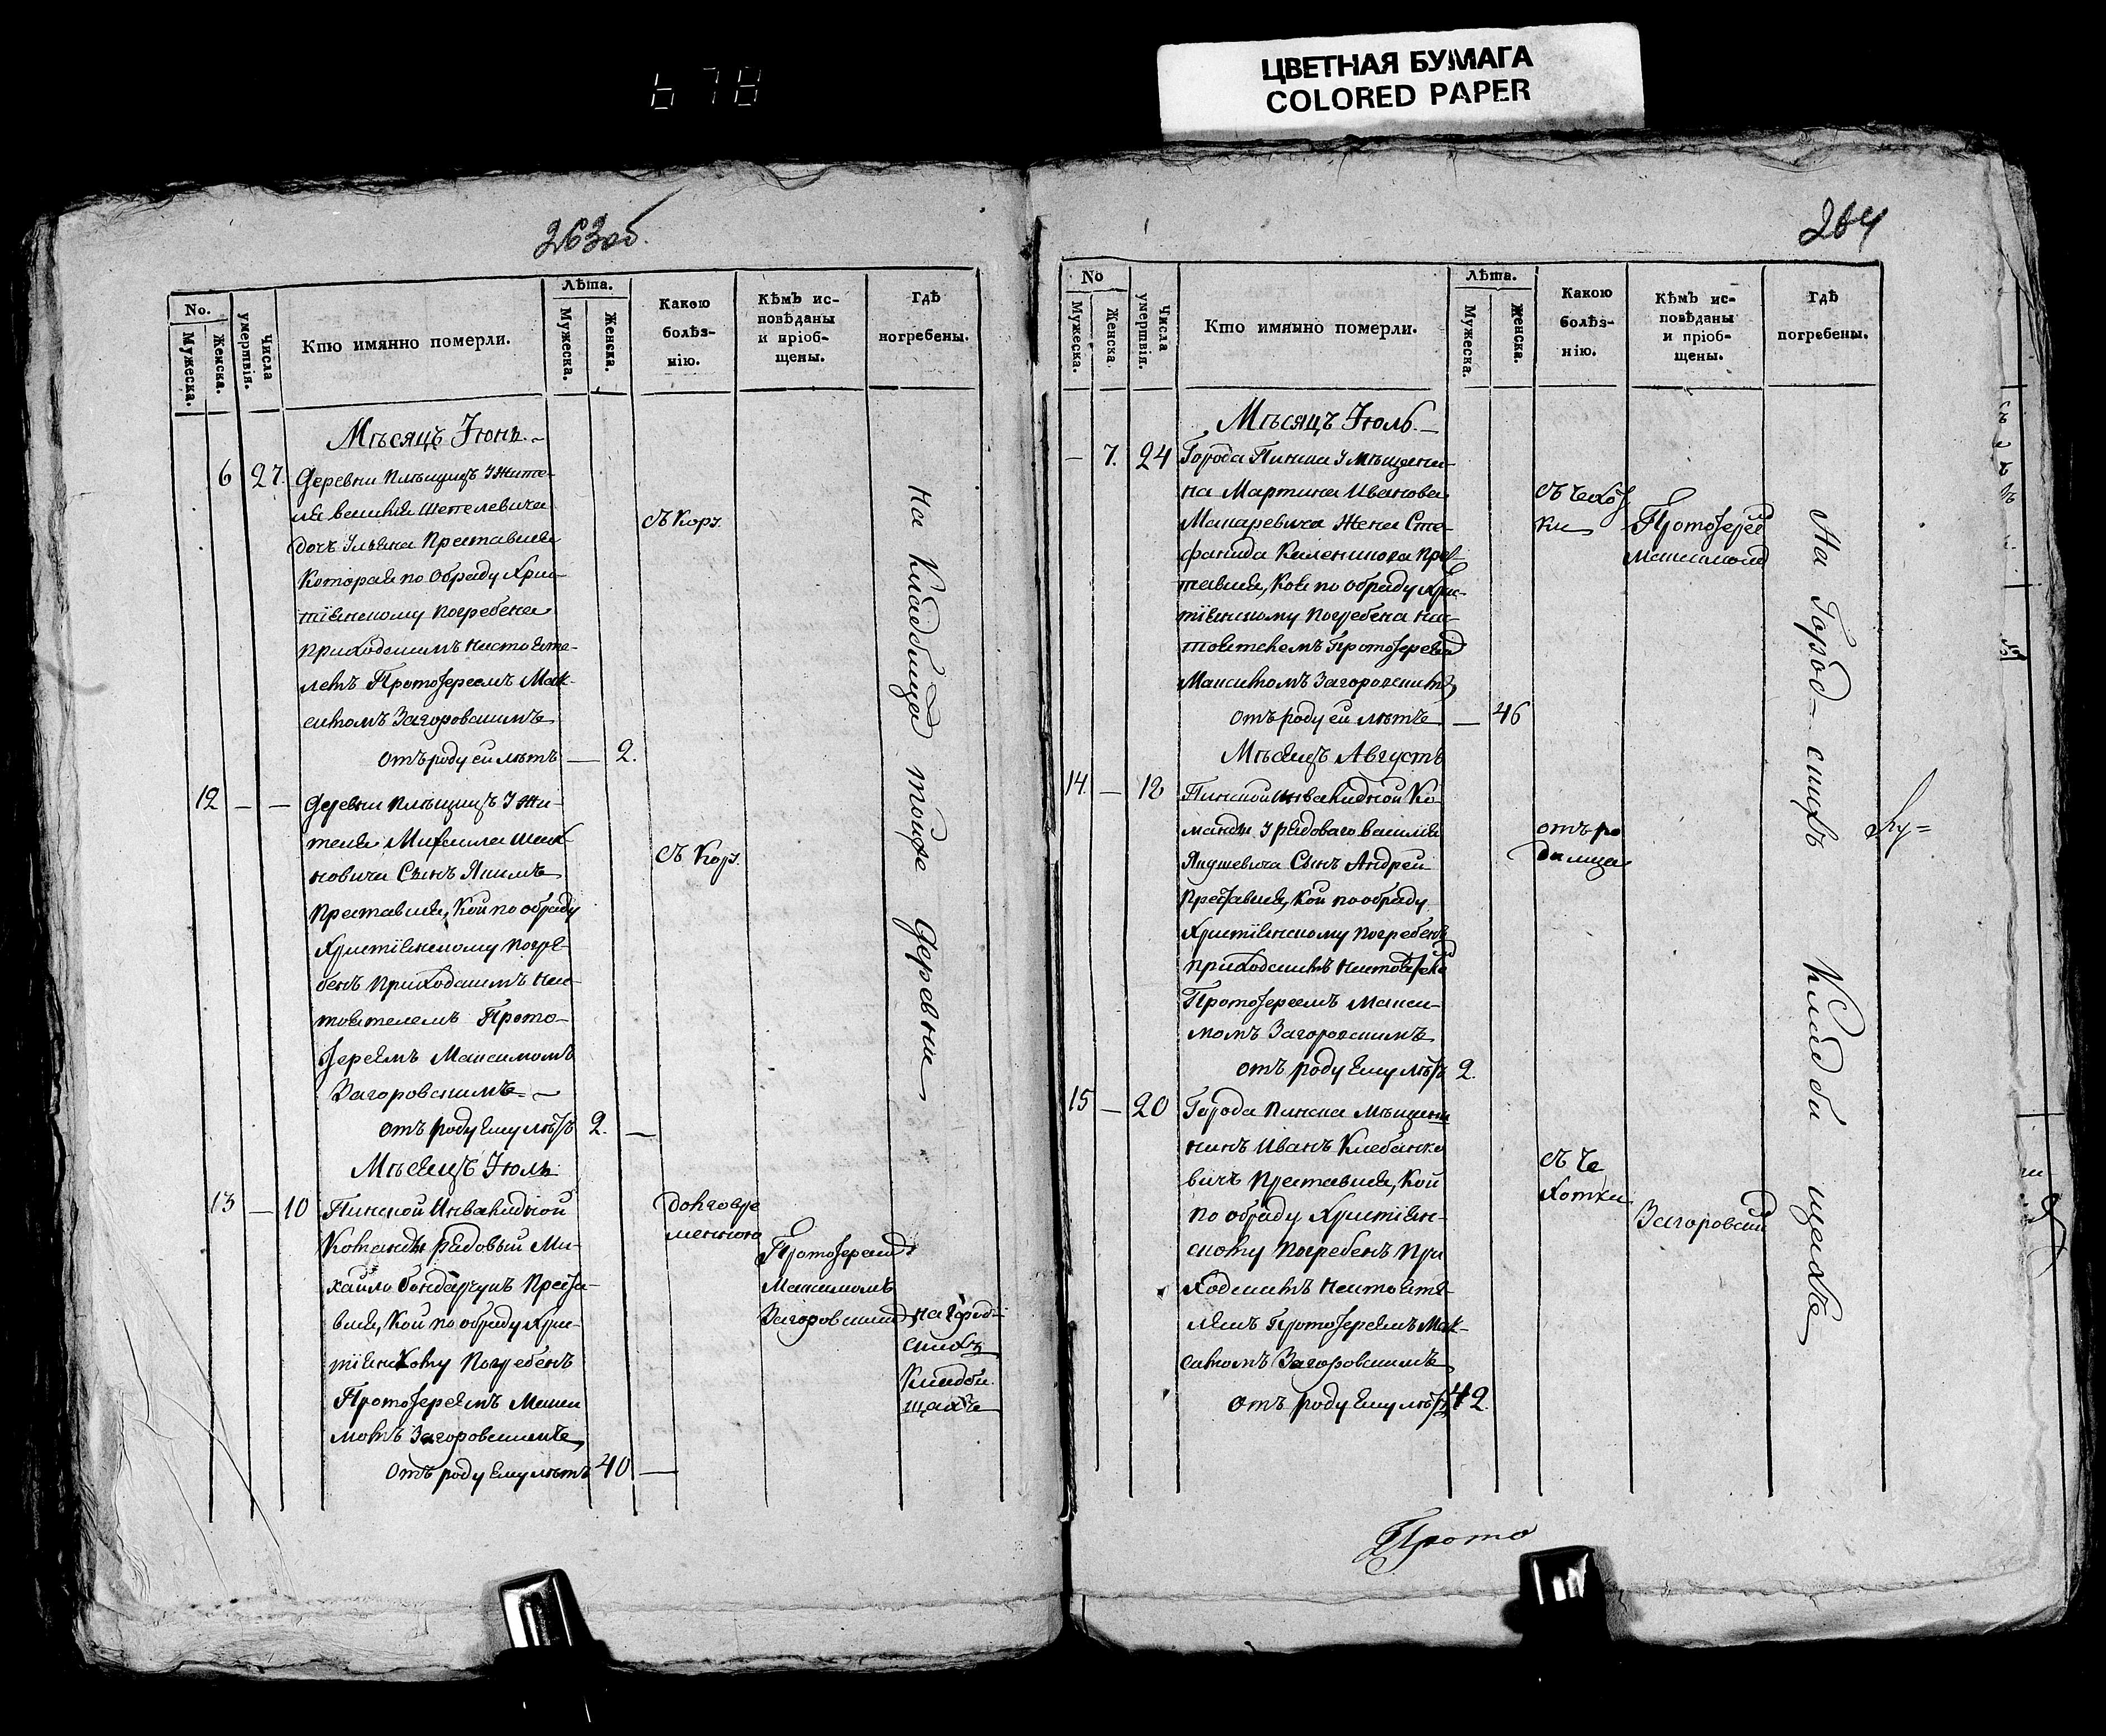 678
ЦВЕТНАЯ БУМАГА
COLORED PAPER
263об.
No.
Мужеска.
Женска.
Числа умертвія.
Кто имянно померли.
Лѣта.
Мужеска.
Женска.
Какою болѣз-
нію.
Кѣмъ ис-
повѣданы
и пріоб-
щены.
Гдѣ
погребены.
Мѣсяцъ Іюнь.
6 27. Деревни Плещицъ Жите-
ля
дочь Преставися
Которая по Обряду Хри-
тіянскому Погребена
Приходскимъ Настояте-
лемъ Протоіереемъ Мак-
симомъ Загоровскимъ
отъ роду ей лѣтъ — 2.
съ Кору.
На Кладбище тойже деревни
12 — — Деревни Плещицъ Жи-
теля Михаила
новича Сынъ Якимъ
Преставися, Кой по обряду
Христіянскому Погре-
бенъ Приходскимъ Нас-
тоятелемъ Прото-
іереемъ Максимомъ
Загоровскимъ
отъ роду Ему лѣтъ 2. —
съ Кору.
Мѣсяцъ Іюль
13 — 10 Пинской Инвалидной
Команды рядовый Ми-
хайло Бондарчукъ Преста-
вися, Кой по обряду Хри-
тіянскому Погребенъ
Протоіереемъ Макси
момъ Загоровскимъ
отъ роду Ему лѣтъ 40 —
долговре
менною
Протоіереемъ
Максимомъ
Загоровскимъ
на Город-
скихъ
Кладби
щахъ
264
No
Мужеска.
Женска.
Числа умертвія.
Кто имянно померли.
Лѣта.
Мужеска.
Женска.
Какою
болѣз-
нію.
Кѣмъ ис-
повѣданы
и пріоб-
щены.
Гдѣ
погребены.
Мѣсяцъ Іюль.
— 7. 24 Города Пинска Мѣщени-
на Мартина Иванова
Макаревича Жена Сте-
фанида Каленикова Прес-
тавися, Коя по обряду Хри-
тіянскому Погребена Нас-
тоятелемъ Протоіереемъ
Максимомъ Загоровскимъ
отъ роду ей лѣтъ — 46
съ Чехот
ки
Протоіереемъ
Максимомъ
На Город-скихъ Кладби щахъ
Мѣсяцъ Августъ
14. — 12 Пинской Инвалидной Ко
манды рядоваго Василія
Янушевича Сынъ Андрей
Преставися, Кой по обряду
Христіянскому Погребенъ
Приходскимъ Настоятелемъ
Протоіереемъ Макси-
момъ Загоровскимъ
отъ роду Ему лѣтъ 2.
отъ ро
димца
15 — 20 Города Пинска Мѣщени
нинъ Иванъ Клебанко
вичъ Преставися, Кой
по обряду Христіян-
скому Погребенъ При
ходскимъ Настояте-
лемъ Протоіереемъ Мак-
симомъ Загоровскимъ
отъ роду Ему лѣтъ 42.
съ Че
хотки
Загоровскимъ
Ку=
Прото